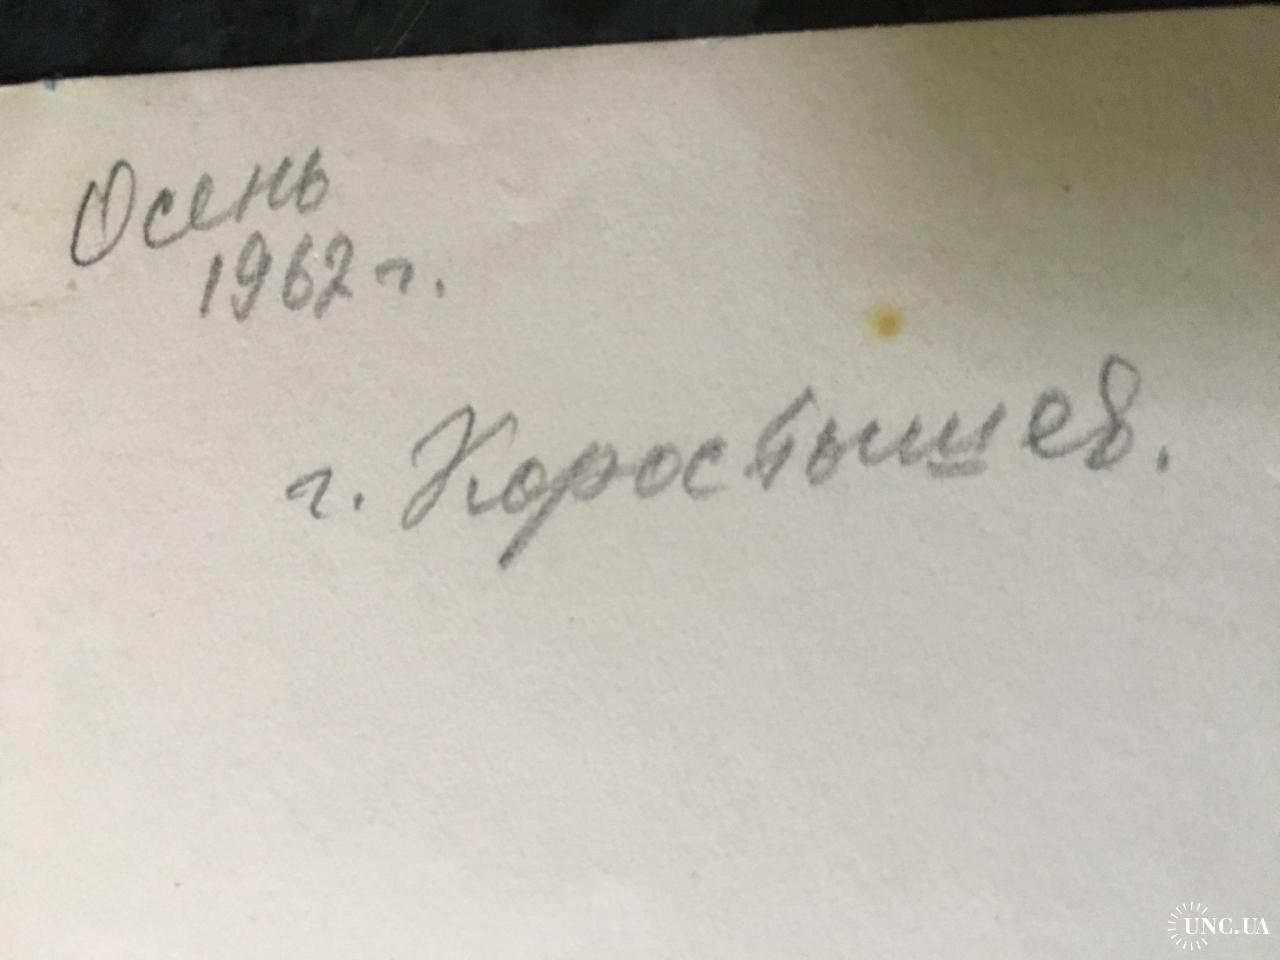 Осень
1962 г.
г. Коростышев.
UNC.UA